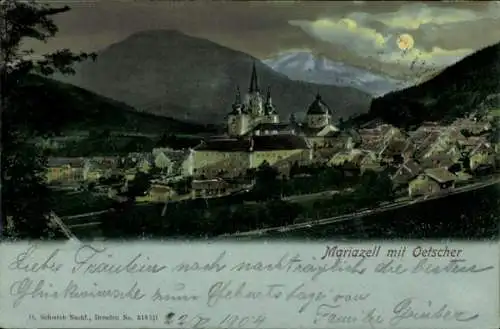 Mariazell mit Oetscher
Liebes Fräulein nach nachträglich die besten
Glückwünsche zum Geburtstage von
Familie
O. Schleich Nachf., Dresden No.
22/V 1904